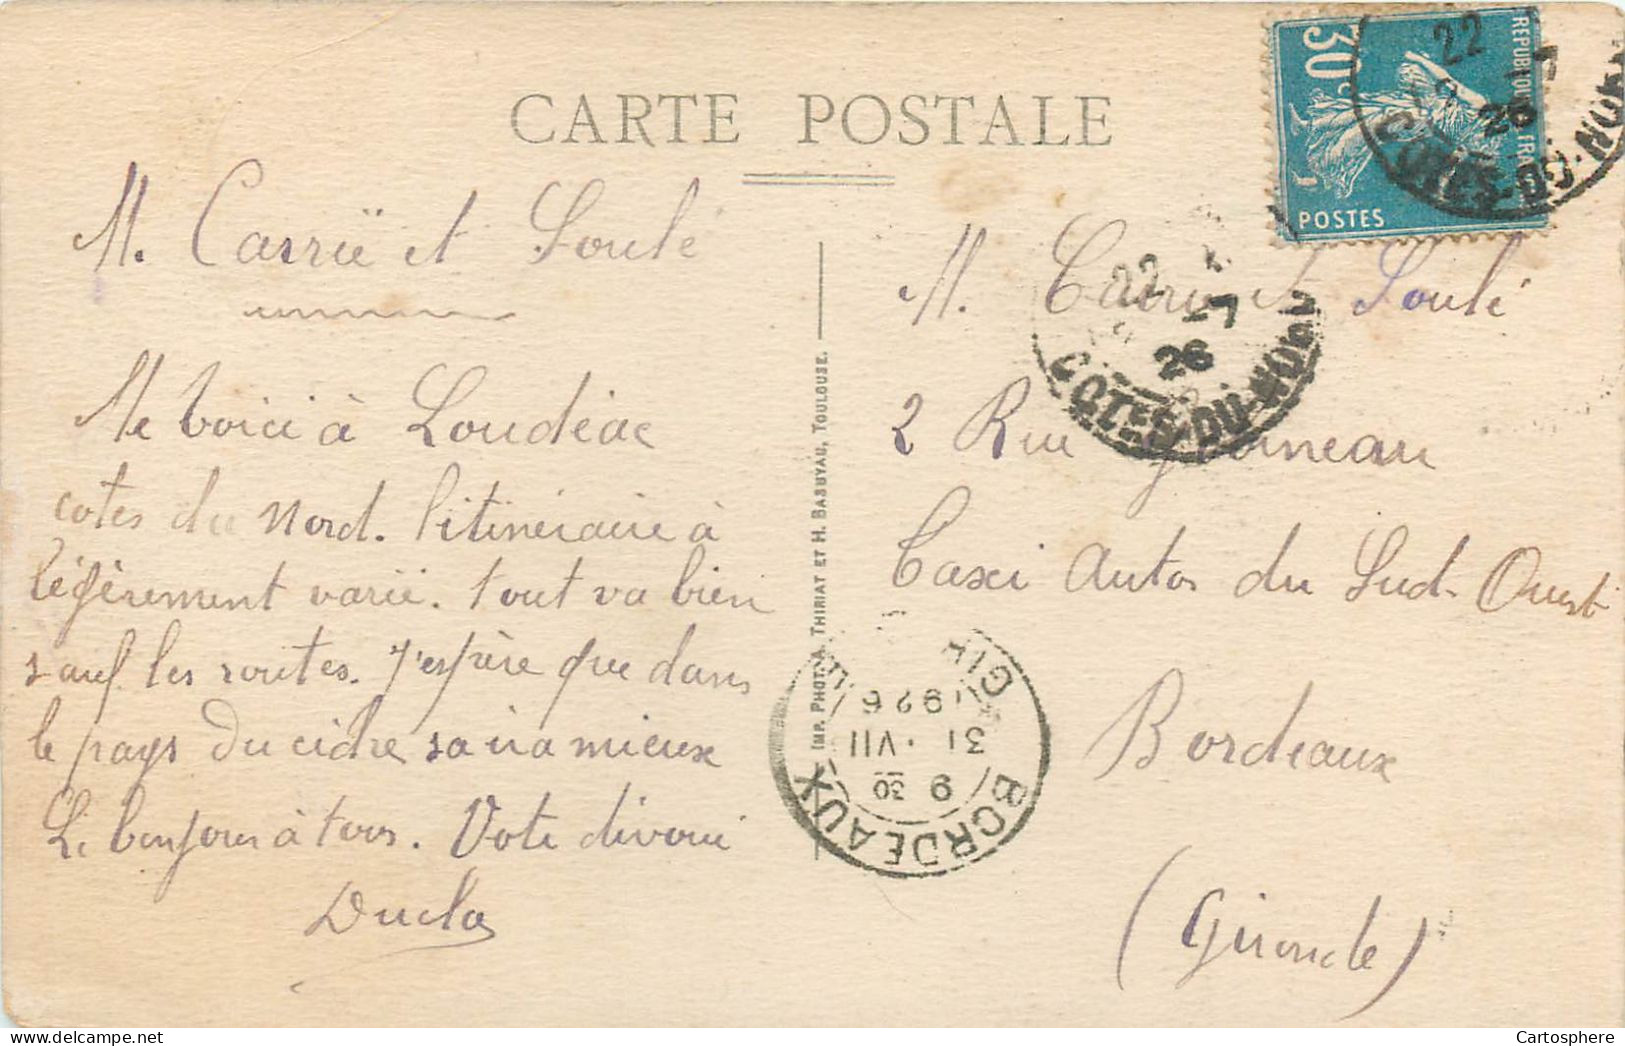 CARTE POSTALE
M. Carrié et Soulé
Me voici à Loudéac
cotes du Nord. l'itinéraire à
légèrement varié. tout va bien
sauf les routes. J'espère que dans
le pays du cidre sa ira mieux
Le bonjour à tous. Vote divoué
Ducla
IMP. PHOT. A. THIRIAT ET H. BASUYAU, TOULOUSE.
M. Carrié et Soulé
2 Rue
Taxi Autos du Sud-Ouest
Bordeaux
(Gironde)
30c
REPUBLIQUE FRANÇAISE
POSTES
22
7
26
COTES-DU-NORD
22
7
26
COTES-DU-NORD
BORDEAUX
9 30
31 VII
1926
GIR
Cartosphere